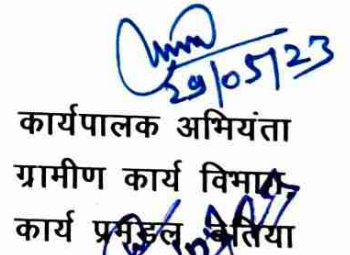 29/05/23
कार्यपालक अभियंता
ग्रामीण कार्य विभाग,
कार्य प्रमंडल, बेतिया